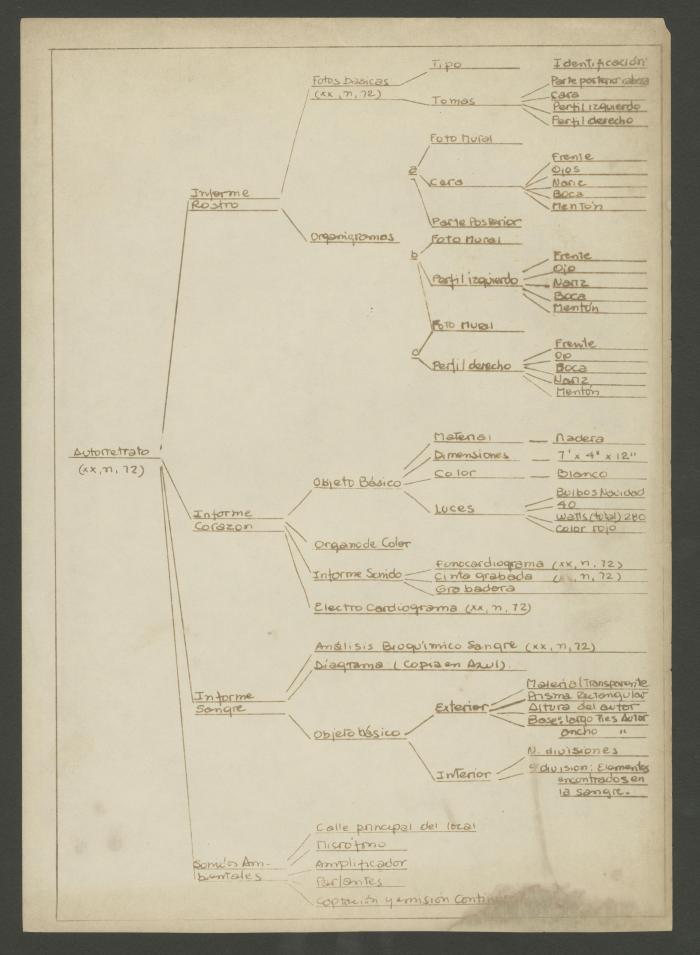 Autorretrato
(xx, n, 72)
Informe
Rostro
Fotos básicas
(xx, n, 72)
Tipo
Identificación
Tomas
Parte posterior cabeza
Cara
Perfil izquierdo
Perfil derecho
Organigramas
a
Foto Mural
Cara
Frente
Ojos
Nariz
Boca
Mentón
Parte Posterior
b
Foto Mural
Perfil izquierdo
Frente
Ojo
Nariz
Boca
Mentón
c
Foto Mural
Perfil derecho
Frente
Ojo
Boca
Nariz
Mentón
Informe
Corazon
Objeto Básico
Material
Madera
Dimensiones
7' x 4" x 12"
Color
Blanco
Luces
Bulbos Navidad
40
Watts (total) 280
Color rojo
Organo de Color
Informe Sonido
Fonocardiograma (xx, n, 72)
Cinta grabada (xx, n, 72)
Grabadora
Electro Cardiograma (xx, n, 72)
Informe
Sangre
Análisis Bioquímico Sangre (xx, n, 72)
Diagrama (Copia en Azul).
Objeto básico
Exterior
Material Transparente
Prisma Rectangular
Altura del autor
Base: largo Pies Autor
ancho "
Interior
N. divisiones
división: Elementos
encontrados en
la sangre.
Sonidos Am-
bientales
Calle principal del local
Micrófono
Amplificador
Parlantes
Captación y emisión